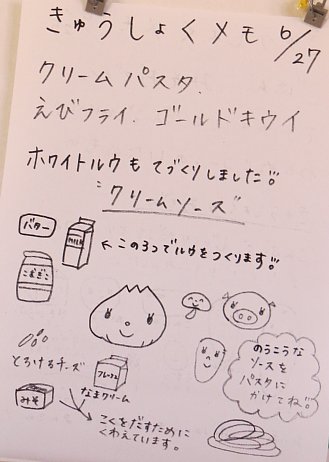 きゅうしょくメモ 6/27
クリームパスタ.
えびフライ. ゴールドキウイ
ホワイトルウも てづくりしました!!
"クリームソース"
バター
MILK
←この3つでルウをつくります!!
こむぎこ
とろけるチーズ
フレッシュ
なまクリーム
みそ
こくをだすために
くわえています。
のうこうな
ソースを
パスタに
かけてね!!